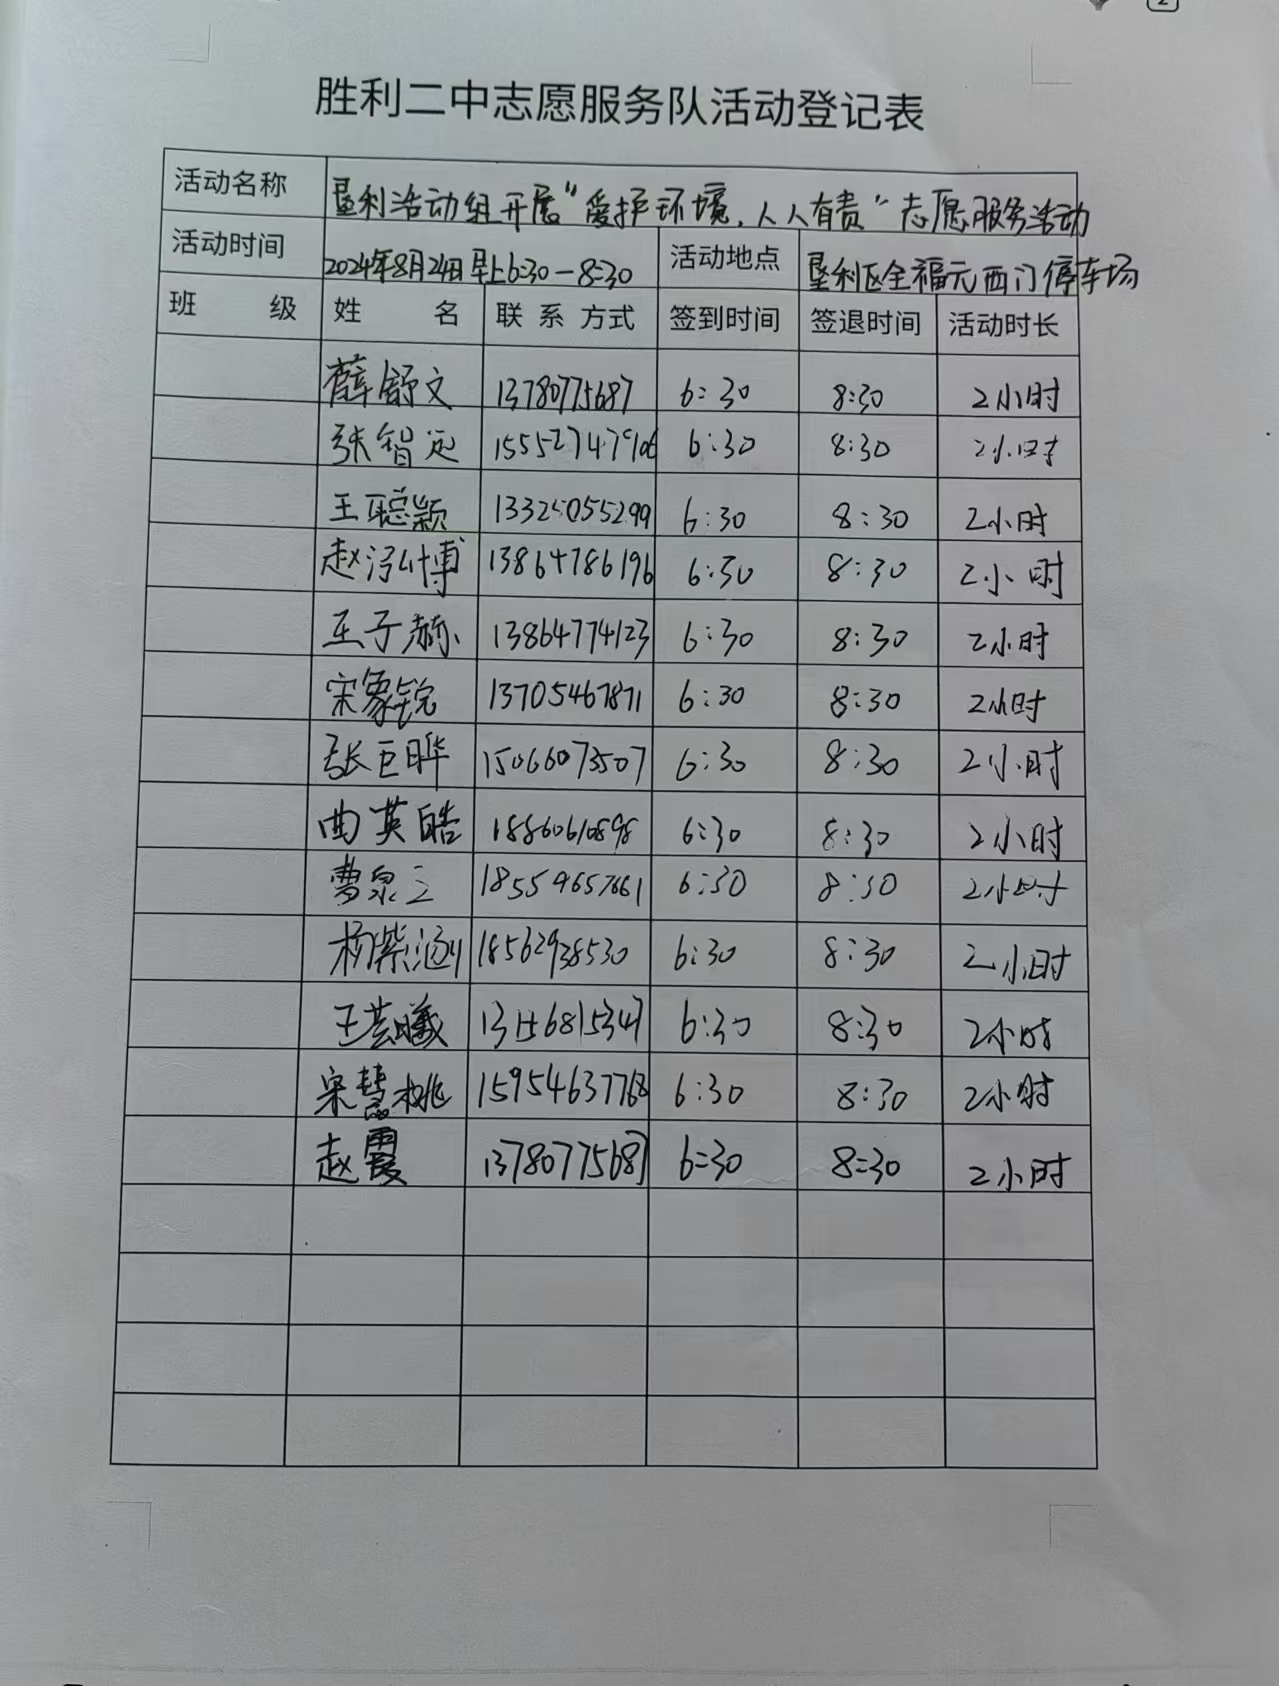 胜利二中志愿服务队活动登记表
活动名称 垦利活动组开展“爱护环境，人人有责”志愿服务活动
活动时间 2024年8月24日早上6:30－8:30 活动地点 垦利区全福元西门停车场
班 级 姓 名 联系方式 签到时间 签退时间 活动时长
薛舒文 13780775687 6:30 8:30 2小时
张智远 6:30 8:30 2小时
王聪颖 13325055299 6:30 8:30 2小时
赵泓博 13864786196 6:30 8:30 2小时
王子赫 13864774123 6:30 8:30 2小时
宋象锐 13705467871 6:30 8:30 2小时
张巨晔 15066073507 6:30 8:30 2小时
曲英皓 18860610898 6:30 8:30 2小时
曹泉三 18559657661 6:30 8:30 2小时
杨紫涵 18562938530 6:30 8:30 2小时
王芸曦 6:30 8:30 2小时
宋慧桃 15954637768 6:30 8:30 2小时
赵霞 13780775687 6:30 8:30 2小时